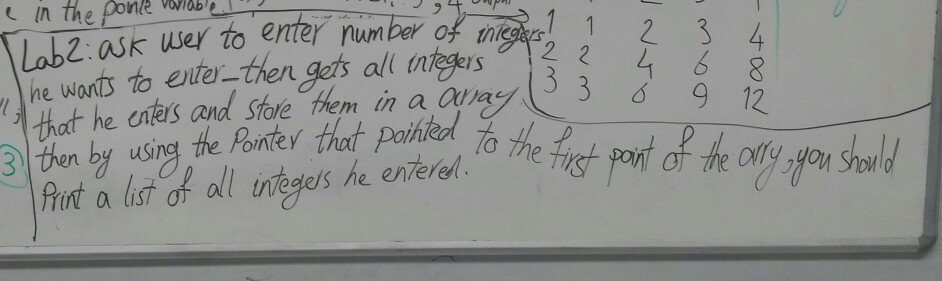 in the pointe variable
Lab2: ask user to enter number of integers
he wants to enter-then gets all integers
that he enters and store them in a array,
then by using the Pointer that pointed to the first point of the arry, you should
Print a list of all integers he entered.
3
1 1 2 3 4
2 2 4 6 8
3 3 6 9 12